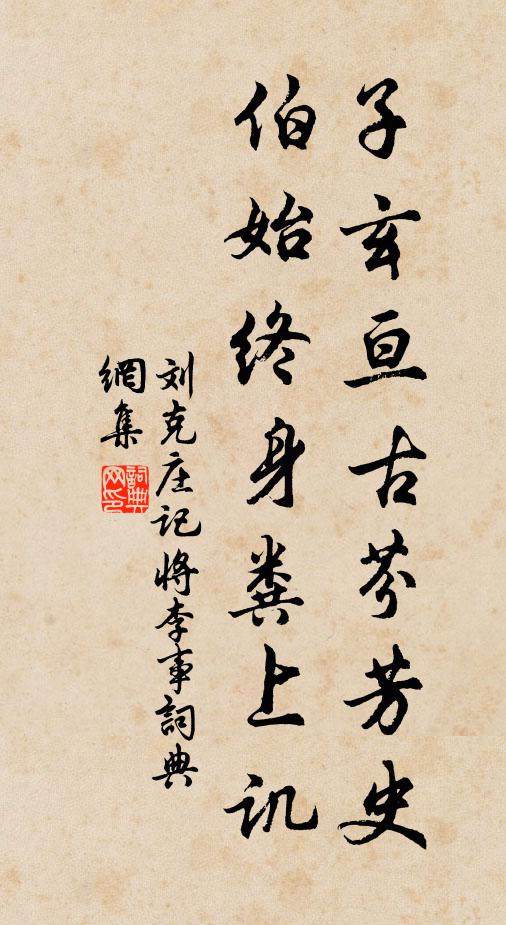 子玄亘古芬芳史
伯始终身粪上讥
刘克庄记将李事詞典
網集
詞典
网印